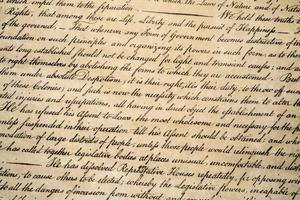 which impel them to the separation. which the Laws of Nature and of Nat
Rights, that among these are Life, Liberty and the pursuit of Happiness.— We hold these truths
of the governed,— That whenever any Form of Government becomes destructive of
foundation on such principles and organizing its powers in such form,
long established should not be changed for light and transient causes; and
to right themselves by abolishing the forms to which they are accustomed. But
them under absolute Despotism, it is their right, it is their duty, to throw off
of these Colonies; and such is now the necessity which constrains them to alter
injuries and usurpations, all having in direct object the establishment of an
He has refused his Assent to Laws, the most wholesome and necessary for the
unless suspended in their operation till his Assent should be obtained; and
of large districts of people, unless those people would relinquish the right
has called together legislative bodies at places unusual, uncomfortable, and
He has dissolved Representative Houses repeatedly, for opposing
to cause others to be elected; whereby the Legislative powers, incapable of
all the dangers of invasion from without, and